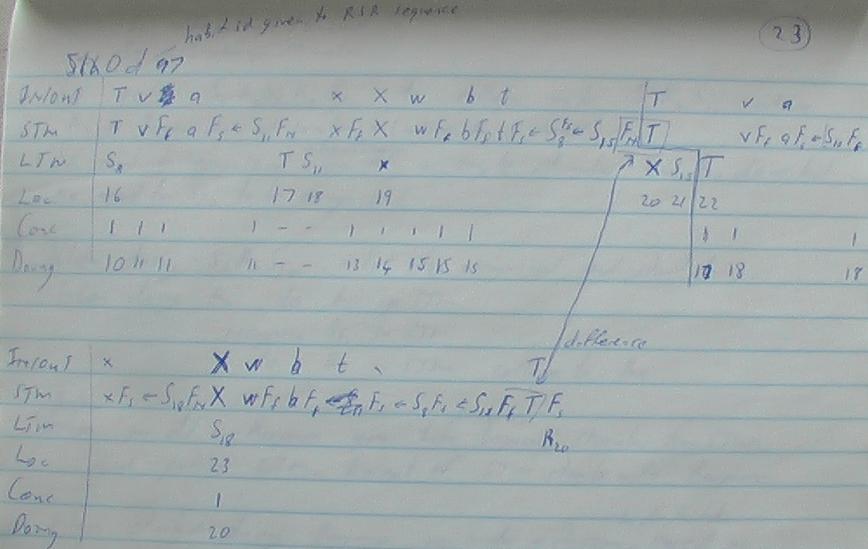 habit id given to RSR sequence
23
In/Out T v a x X w b t T v a
STM T v Ff a Fs ← S11 FN x Ff X w Ff b Fs t Fs ← S8 Fs ← S15 FN T v Ff a Fs ← S11 Ff
LTM S8 T S11 x X S15 T
Loc 16 17 18 19 20 21 22
Conc 1 1 1 1 - - 1 1 1 1 1 1 1 1
Doing 10 11 11 11 - - 13 14 15 15 15 18 18
difference
In/Out x X w b t T
STM x Fs ← S18 FN X w Ff b Ff Fs ← S8 Fs ← S18 Ff T Fs
LTM S18 R20
Loc 23
Conc 1
Doing 20